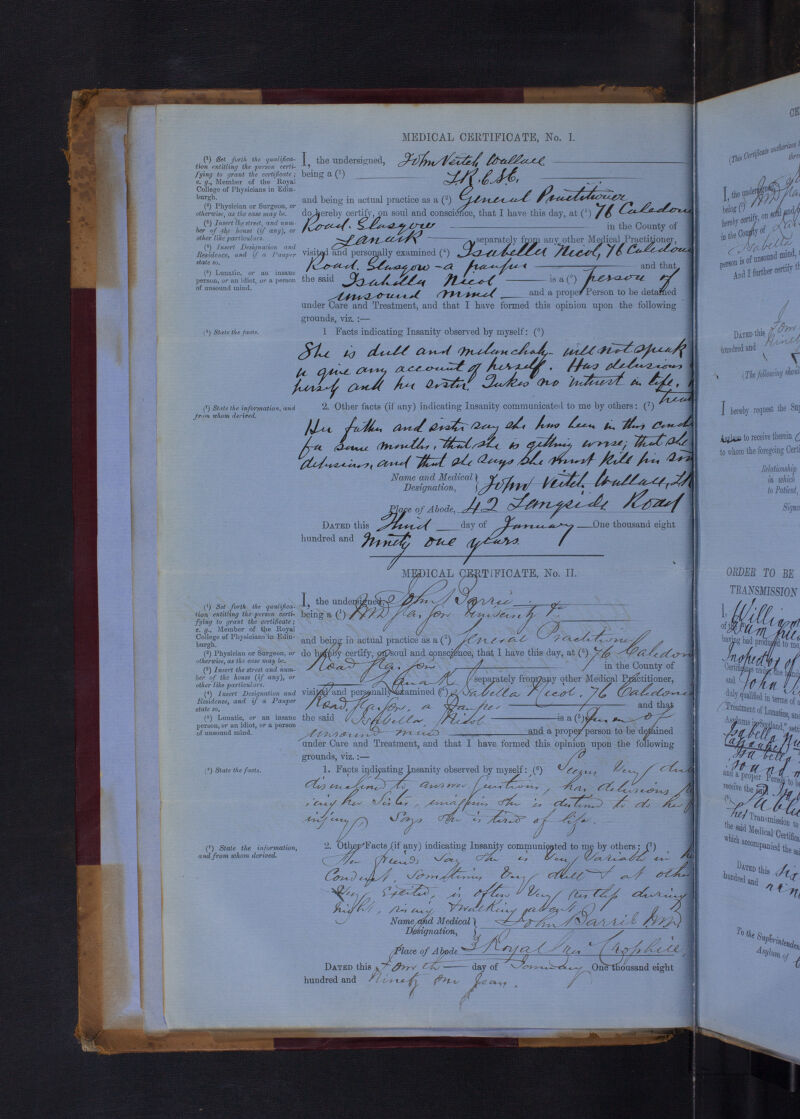 MEDICAL CERTIFICATE, No. I.
(¹) Set forth the qualifica-
tion entitling the person certi-
fying to grant the certificate;
e. g., Member of the Royal
College of Physicians in Edin-
burgh.
(²) Physician or Surgeon, or
otherwise, as the case may be.
(³) Insert the street, and num-
ber of the house (if any), or
other like particulars.
(⁴) Insert Designation and
Residence, and if a Pauper
state so.
(⁵) Lunatic, or an insane
person, or an idiot, or a person
of unsound mind.
(⁶) State the facts.
(⁷) State the information, and
from whom derived.
I, the undersigned, John Veitch Wallace
being a (¹) L.R.C.S.E.
and being in actual practice as a (²) General Practitioner
do hereby certify, on soul and conscience, that I have this day, at (³) 76 Caledon
Road. Glasgow in the County of
Lanark separately from any other Medical Practitioner,
visited and personally examined (⁴) Isabella Nicol, 76 Caledon
Road. Glasgow - a pauper and that
the said Isabella Nicol is a (⁵) person of
unsound mind and a proper Person to be detained
under Care and Treatment, and that I have formed this opinion upon the following
grounds, viz. :—
1 Facts indicating Insanity observed by myself: (⁶)
She is dull and melancholy - will not speak
or give any account of herself. Has delusions
herself and her sister. Takes no interest in life.
2. Other facts (if any) indicating Insanity communicated to me by others: (⁷)
Her father and sister say she has been in this cond
for some months, that she is getting worse; that she
delusions, and that she says she must kill her
Name and Medical Designation, John Veitch Wallace, LR
Place of Abode, 42 Langside Road
DATED this Third day of January One thousand eight
hundred and Ninety one years
MEDICAL CERTIFICATE, No. II.
(¹) Set forth the qualifica-
tion entitling the person certi-
fying to grant the certificate;
e. g., Member of the Royal
College of Physicians in Edin-
burgh.
(²) Physician or Surgeon, or
otherwise, as the case may be.
(³) Insert the street and num-
ber of the house (if any), or
other like particulars.
(⁴) Insert Designation and
Residence, and if a Pauper
state so.
(⁵) Lunatic, or an insane
person, or an idiot, or a person
of unsound mind.
(⁶) State the facts.
(⁷) State the information,
and from whom derived.
I, the undersigned, John Barrie
being a (¹) M.D. Glasgow University
and being in actual practice as a (²) General Practitioner
do hereby certify, on soul and conscience, that I have this day, at (³) 76 Caledon
Road Glasgow in the County of
Lanark separately from any other Medical Practitioner,
visited and personally examined (⁴) Isabella Nicol. 76 Caledonia
Road Glasgow. a Pauper and that
the said Isabella Nicol is a (⁵) person of
unsound mind and a proper person to be detained
under Care and Treatment, and that I have formed this opinion upon the following
grounds, viz. :—
1. Facts indicating Insanity observed by myself: (⁶) Seems Very
disinclined to answer questions, has delusions
her Sister, imagines she is destined to do her
injury Says she is tired of life.
2. Other Facts (if any) indicating Insanity communicated to me by others: (⁷)
Her friends Say she is Very Variable in
Conduct. Sometimes Very dull & at other
Very Excited, is often Very restless during
night, rising & walking about
Name and Medical Designation, John Barrie MD
Place of Abode 3 Royal Crosshill
DATED this Fourth day of January One thousand eight
hundred and Ninety One years.
I, the undersigned
being (¹)
hereby certify, on soul and
in the County of
person is of unsound mind,
And I further certify
DATED this
hundred and
(The following
I hereby request the
to receive therein
to whom the foregoing
Relationship
in which
to Patient,
ORDER TO BE
TRANSMISSION
I, William
having had produced to me
Inspector of
and John
duly qualified in terms of
and a proper Person to
receive the said
Transmission to
the said Medical
which accompanied the
DATED this
hundred and
To the Superintendent
Asylum of